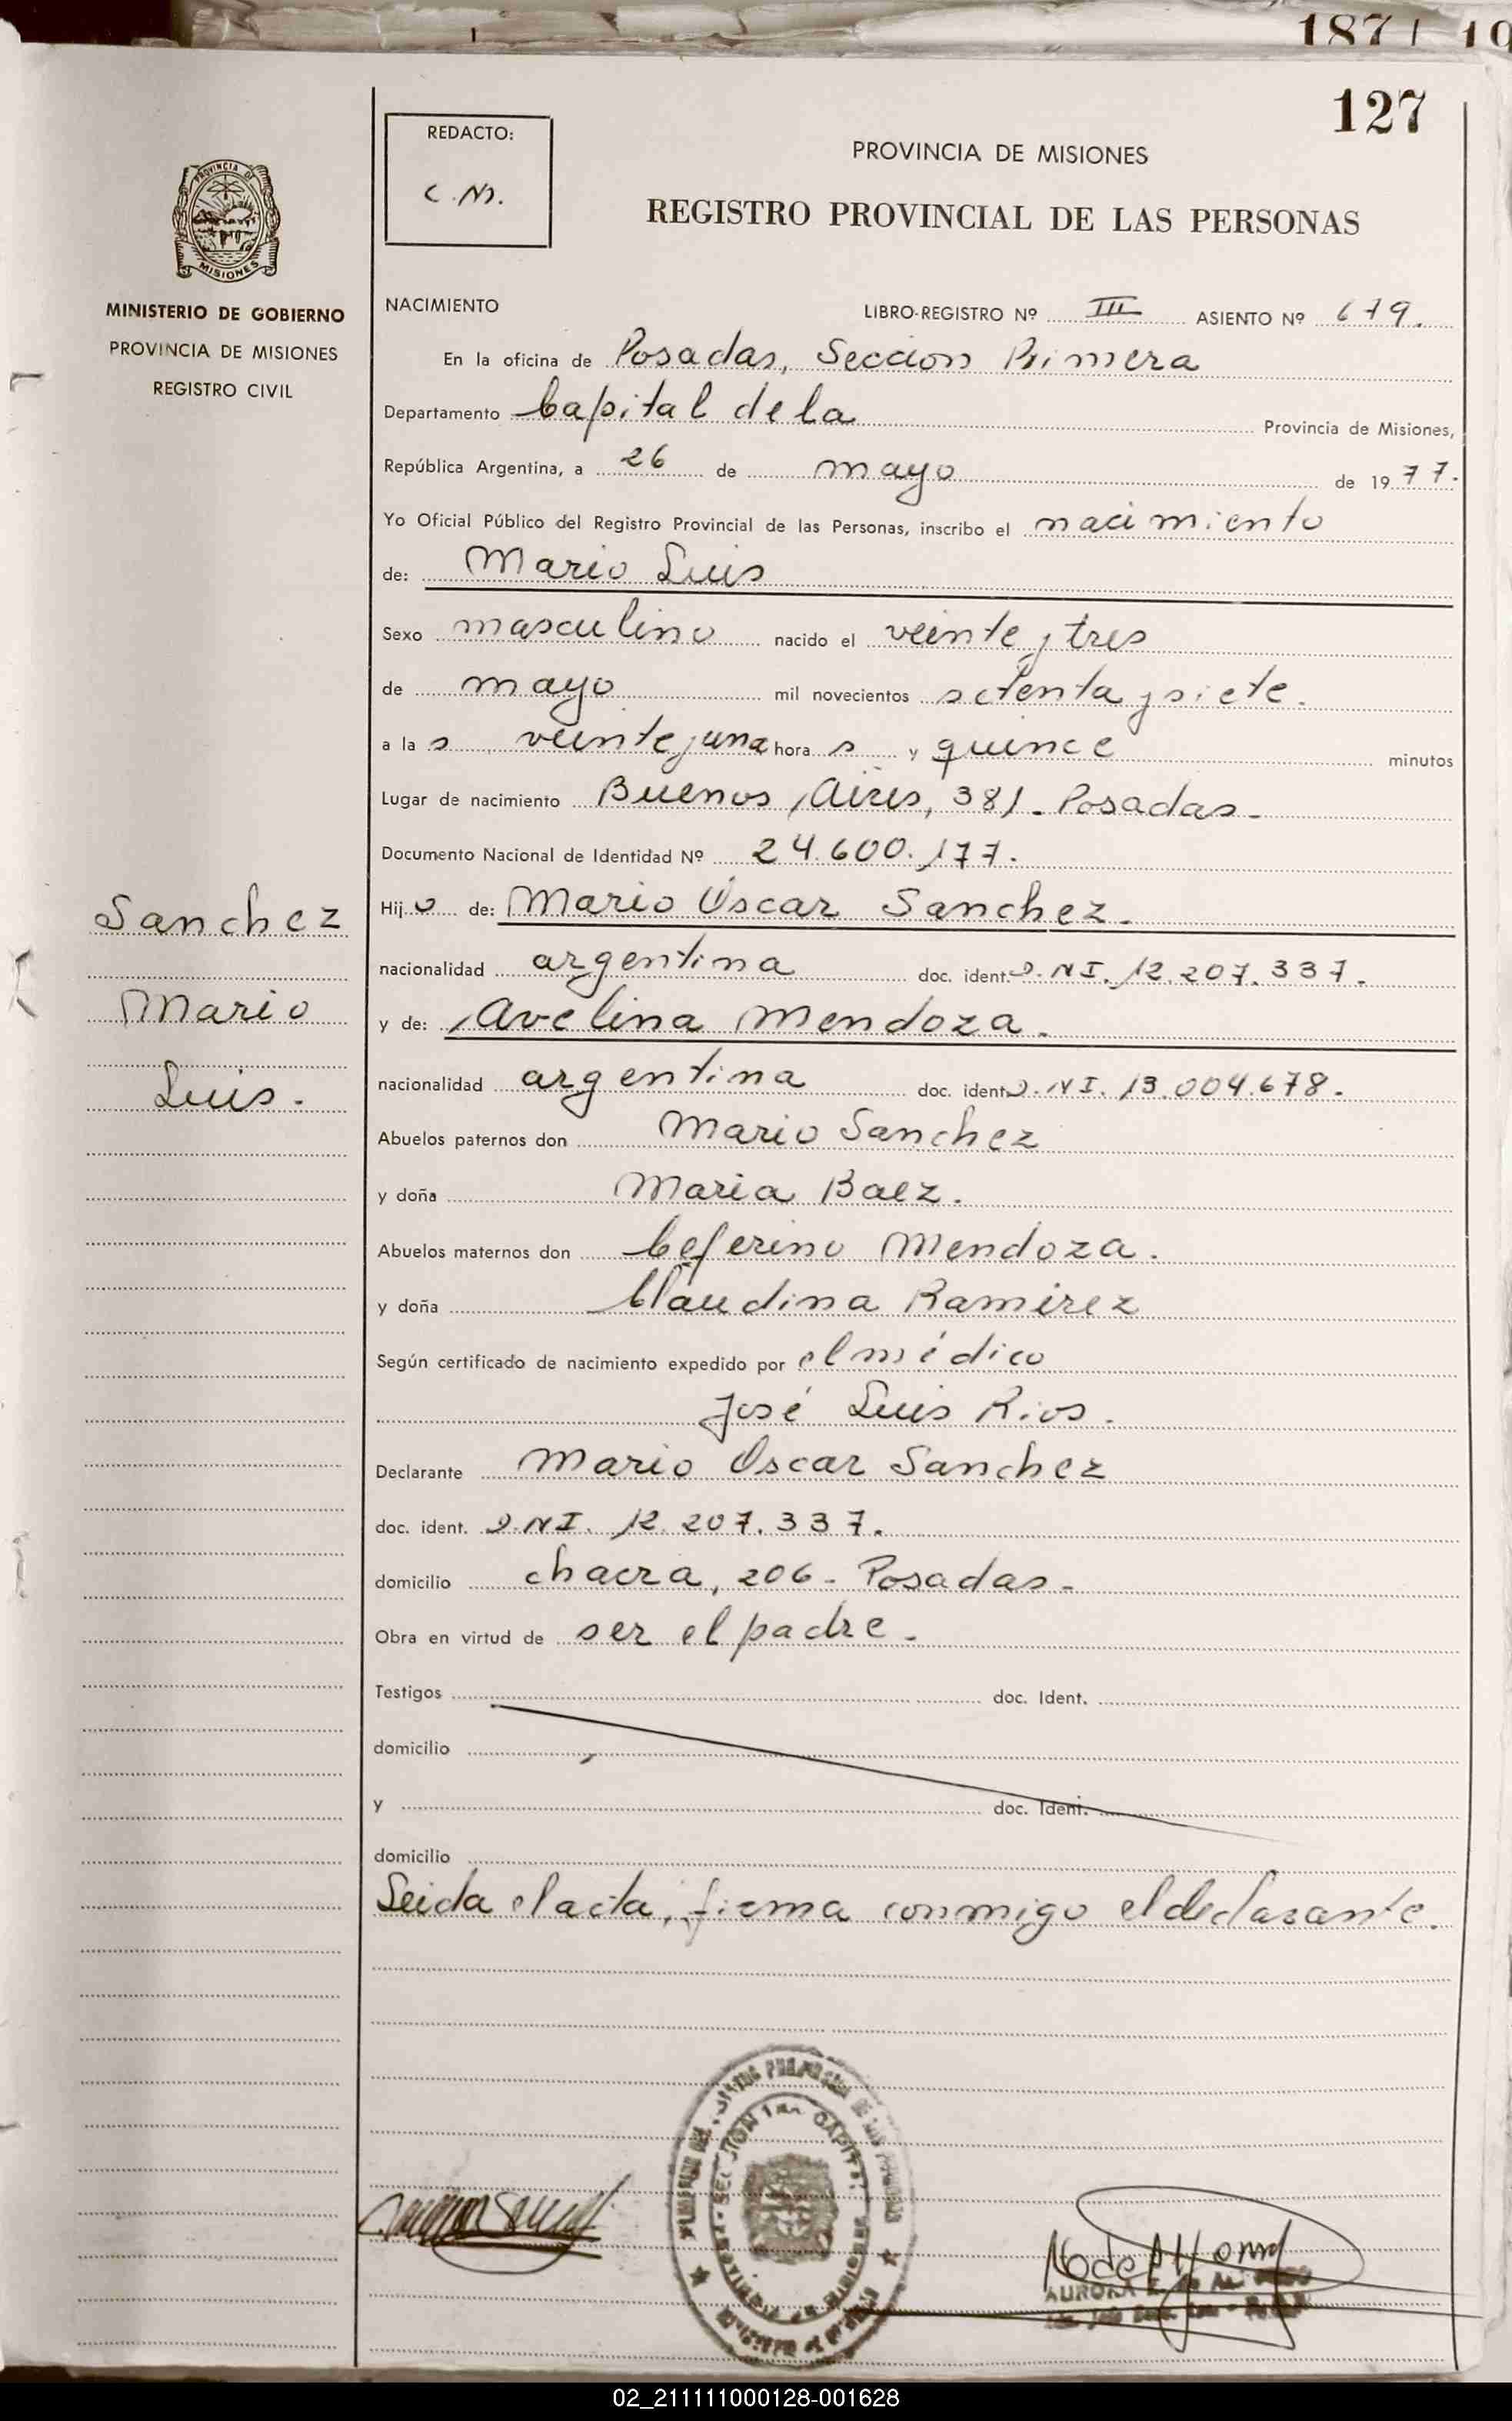 187 | 19
127
REDACTO:
C.M.
PROVINCIA DE MISIONES
REGISTRO PROVINCIAL DE LAS PERSONAS
PROVINCIA DE
MISIONES
MINISTERIO DE GOBIERNO
PROVINCIA DE MISIONES
REGISTRO CIVIL
NACIMIENTO LIBRO-REGISTRO Nº III ASIENTO Nº 679.
En la oficina de Posadas, Seccion Primera
Departamento Capital de la Provincia de Misiones,
República Argentina, a 26 de mayo de 1977.
Yo Oficial Público del Registro Provincial de las Personas, inscribo el nacimiento
de: Mario Luis
Sexo masculino nacido el veinte y tres
de mayo mil novecientos setenta y siete.
a la s veinte y una hora s y quince minutos
Lugar de nacimiento Buenos Aires, 381 - Posadas -
Documento Nacional de Identidad Nº 24.600.177.
Sanchez
Mario
Luis.
Hij o de: Mario Oscar Sanchez.
nacionalidad argentina doc. ident. D.NI. 12.207.337.
y de: Avelina Mendoza.
nacionalidad argentina doc. ident. D.NI. 13.004.678.
Abuelos paternos don Mario Sanchez
y doña Maria Baez.
Abuelos maternos don Ceferino Mendoza.
y doña Claudina Ramirez
Según certificado de nacimiento expedido por el médico
José Luis Rios.
Declarante Mario Oscar Sanchez
doc. ident. D.NI. 12.207.337.
domicilio chacra, 206 - Posadas -
Obra en virtud de ser el padre.
Testigos doc. Ident.
domicilio
y doc. Ident.
domicilio
Leida el acta, firma conmigo el declarante.
AURORA E.
02_211111000128-001628